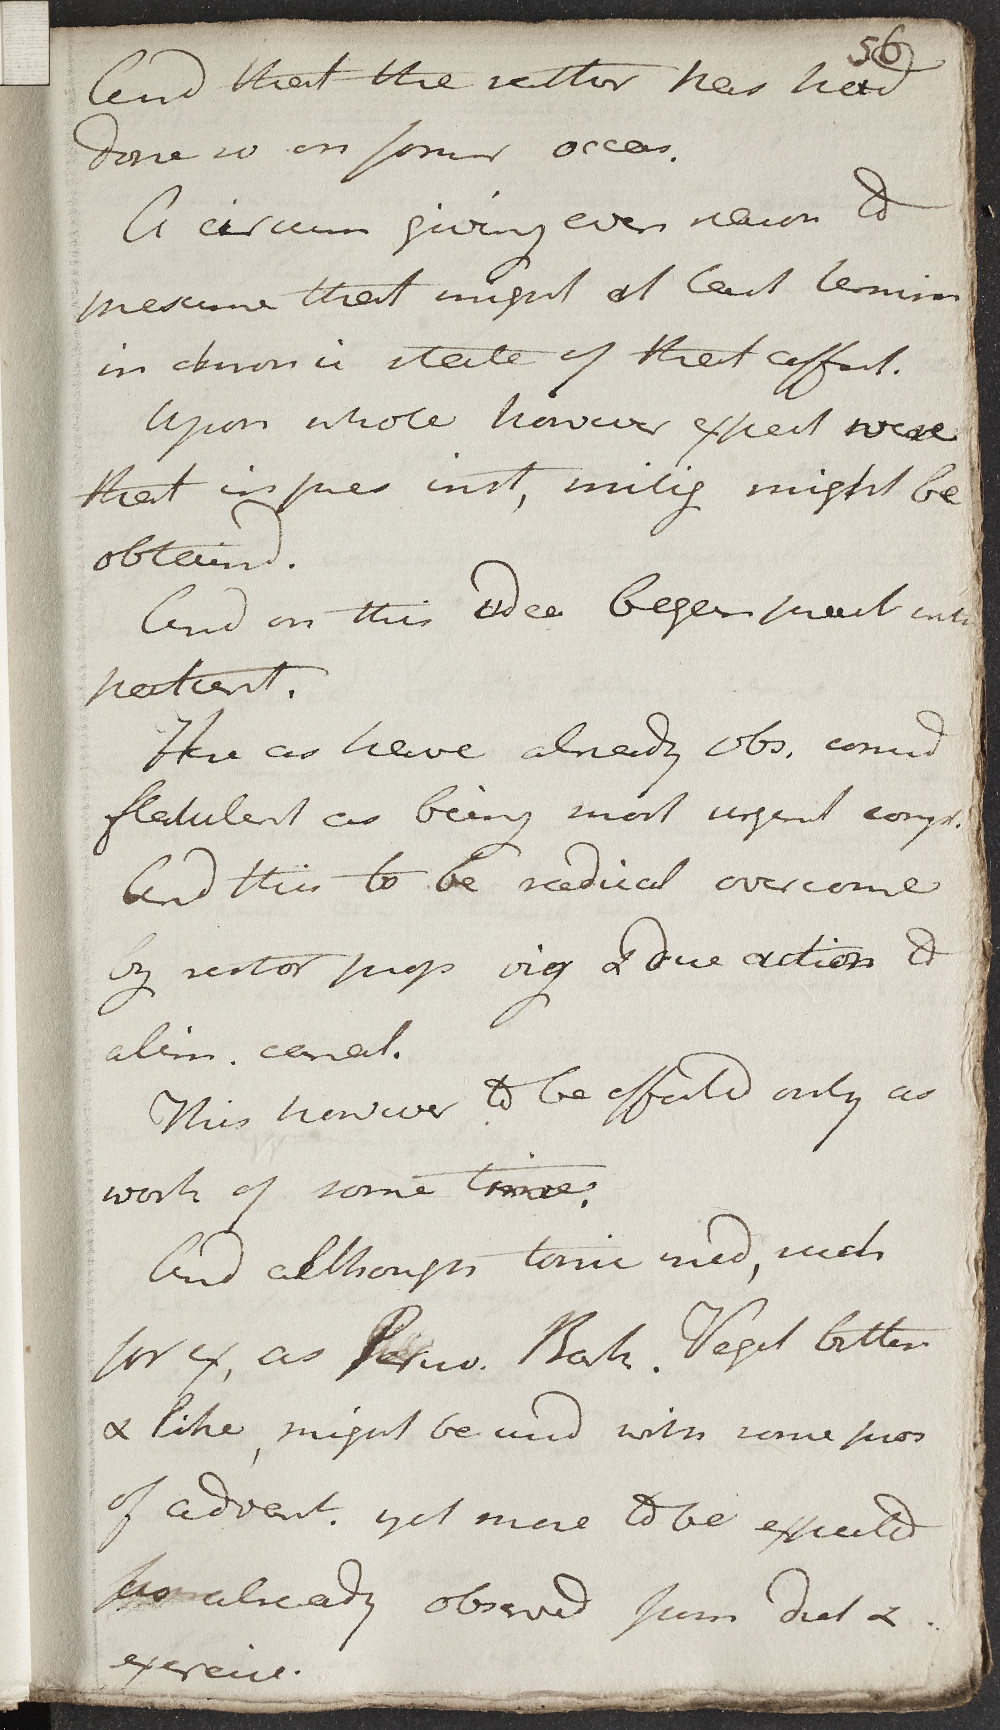 56
And that the latter has had
done so on former occas.
A circum giving even reason to
presume that might at least termin
in chronic state of that affect.
Upon whole however expect were
that in pres inst, mitig might be
obtaind.
And on this idea began pract in
patient.
Here as have already obs. consid
flatulent as being most urgent compl.
And this to be radical overcome
by restor prop vig & due action to
alim. canal.
This however to be effectd only as
work of some time.
And although tonic med, such
for ex, as Peruv. Bark. Veget bitters
& like, might be usd with some pros
of advant. yet more to be expectd
as already observed from diet &
exercise.